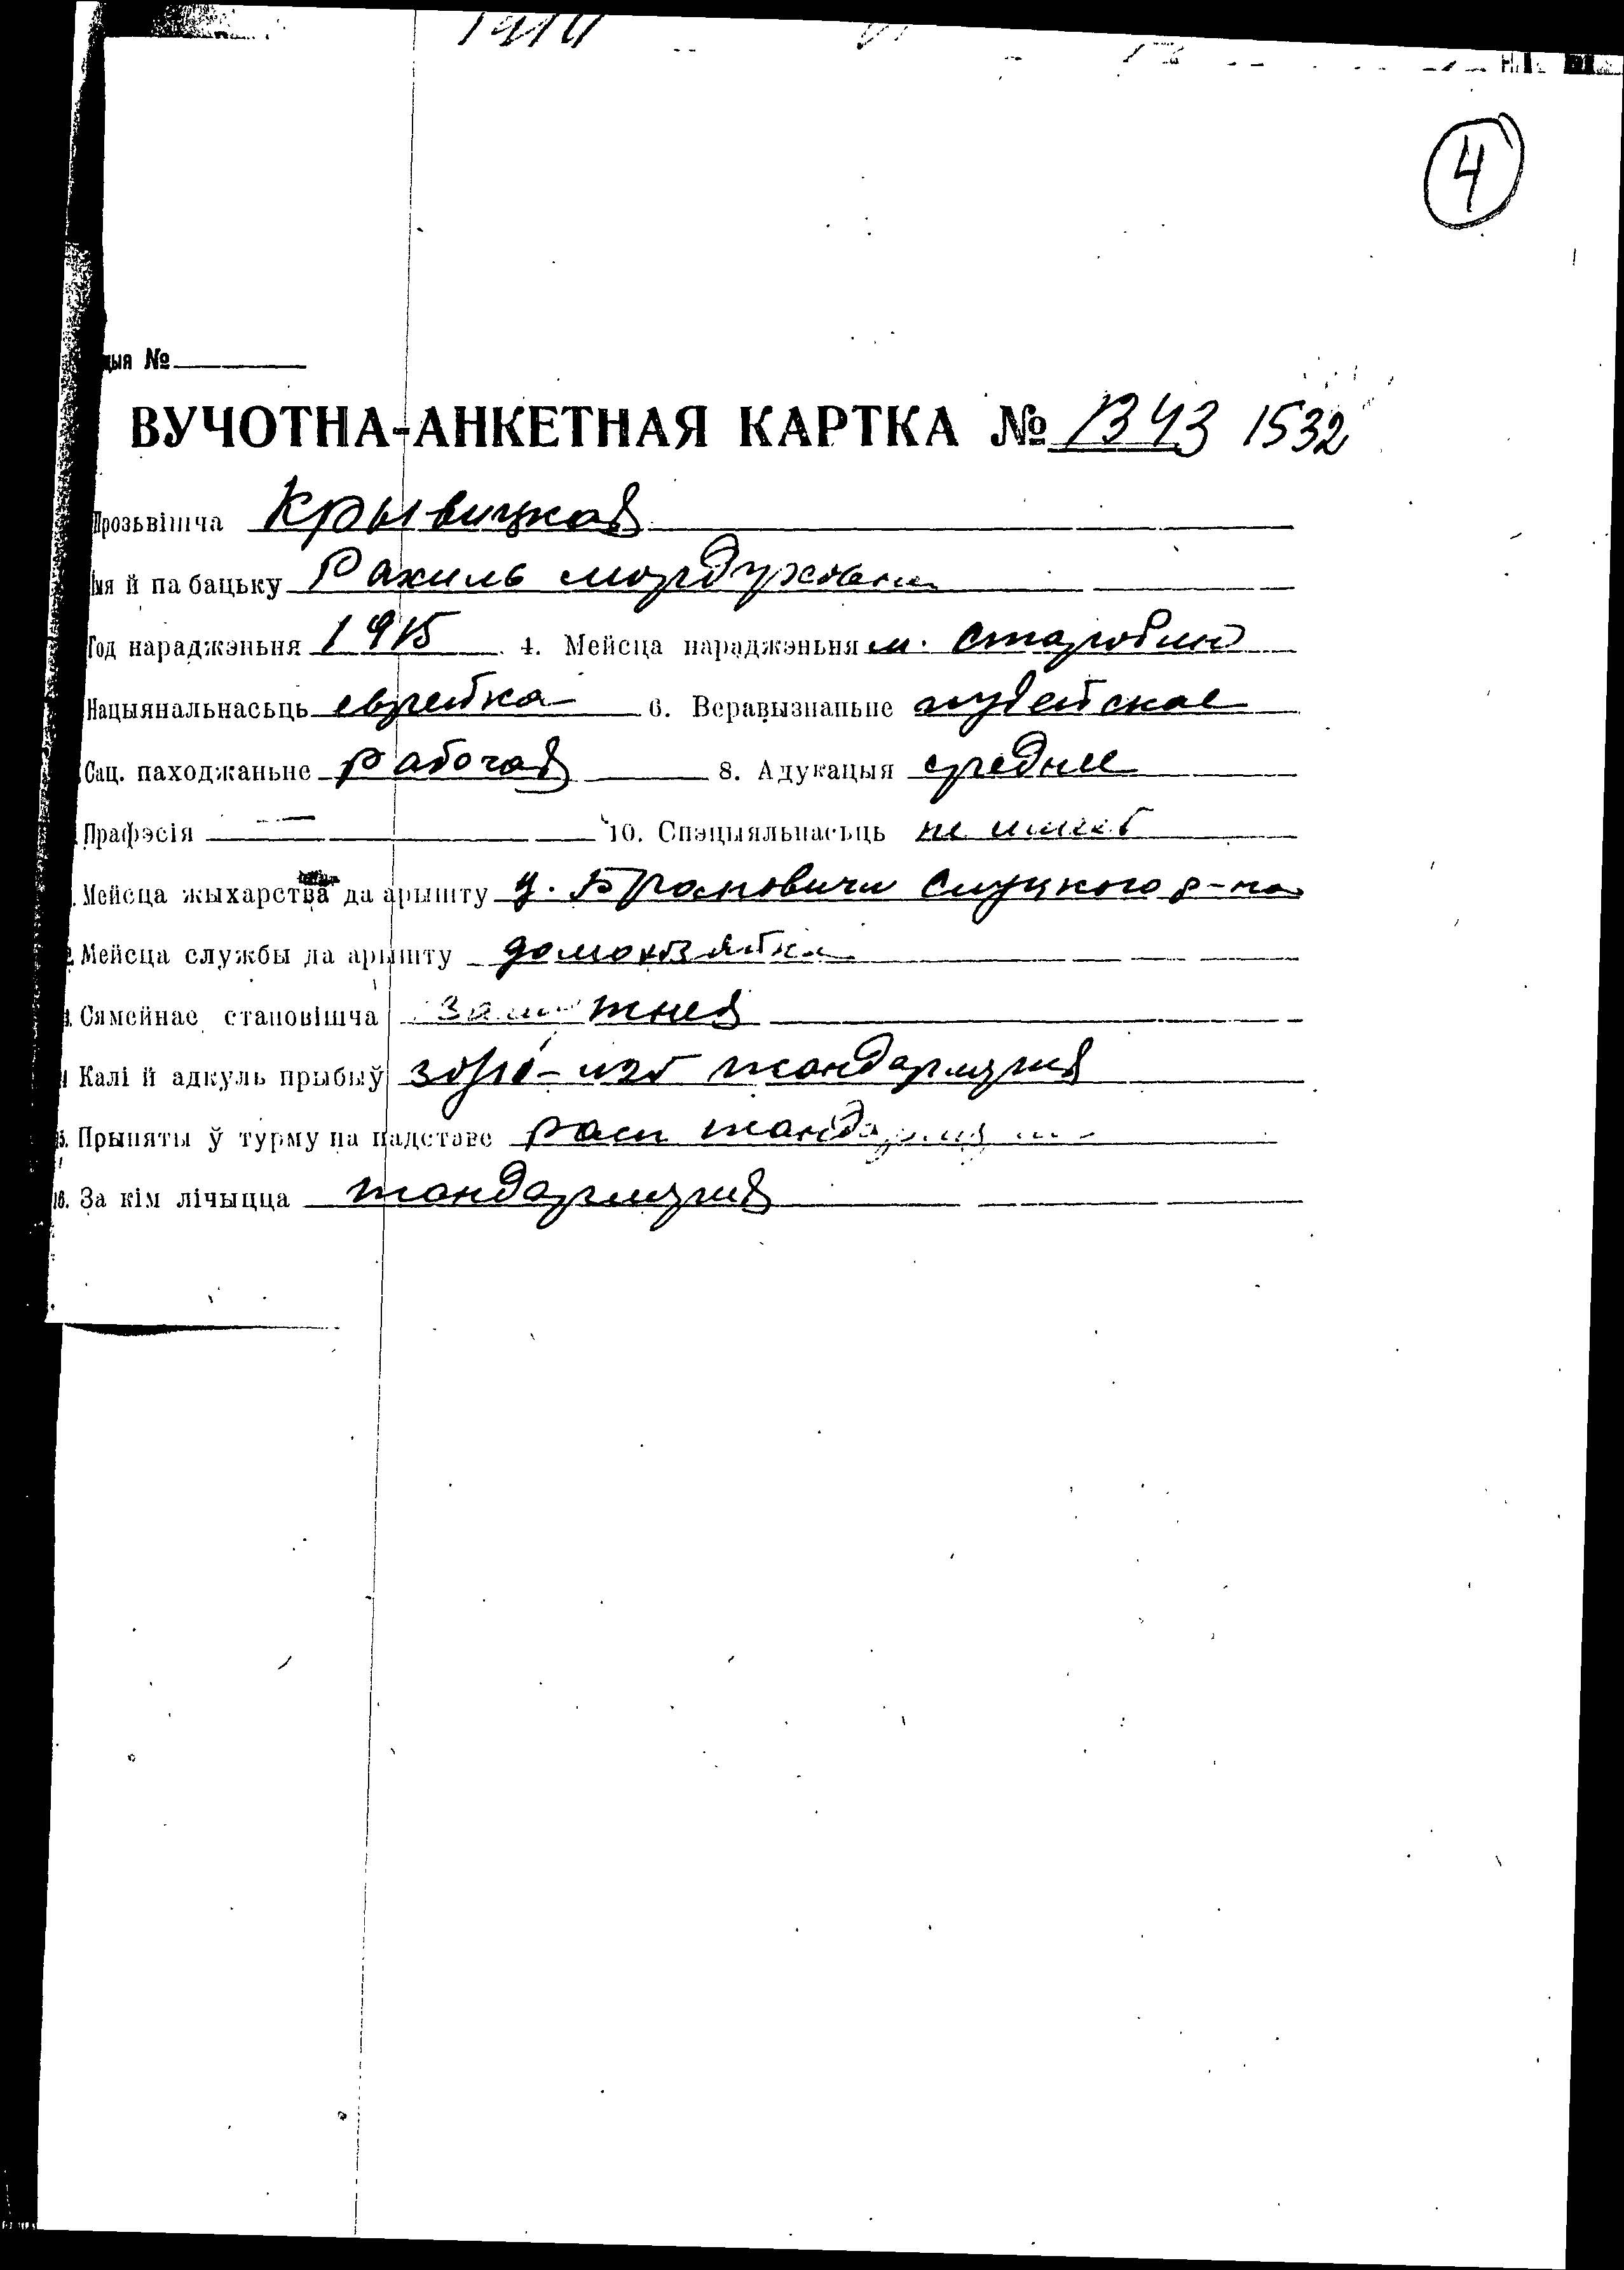 4
цыя №
ВУЧОТНА-АНКЕТНАЯ КАРТКА № 1343 1532
Прозьвішча Крывицкая
Імя й па бацьку Рахиль Мордуховна
Год нараджэньня 1915 4. Мейсца нараджэньня м. Старобин
Нацыянальнасьць еврейка 6. Веравызнаньне иудейское
Сац. паходжаньне рабочая 8. Адукацыя среднее
Прафэсія — 10. Спэцыяльнасьць не имеет
Мейсца жыхарства да арышту д. Слуцкого р-на
Мейсца службы да арышту домохозяйка
Сямейнае становішча замужняя
Калі й адкуль прыбыў 30/10 - из жандармерия
5. Прыняты ў турму на падставе расп жандармерии
16. За кім лічыцца жандармерия